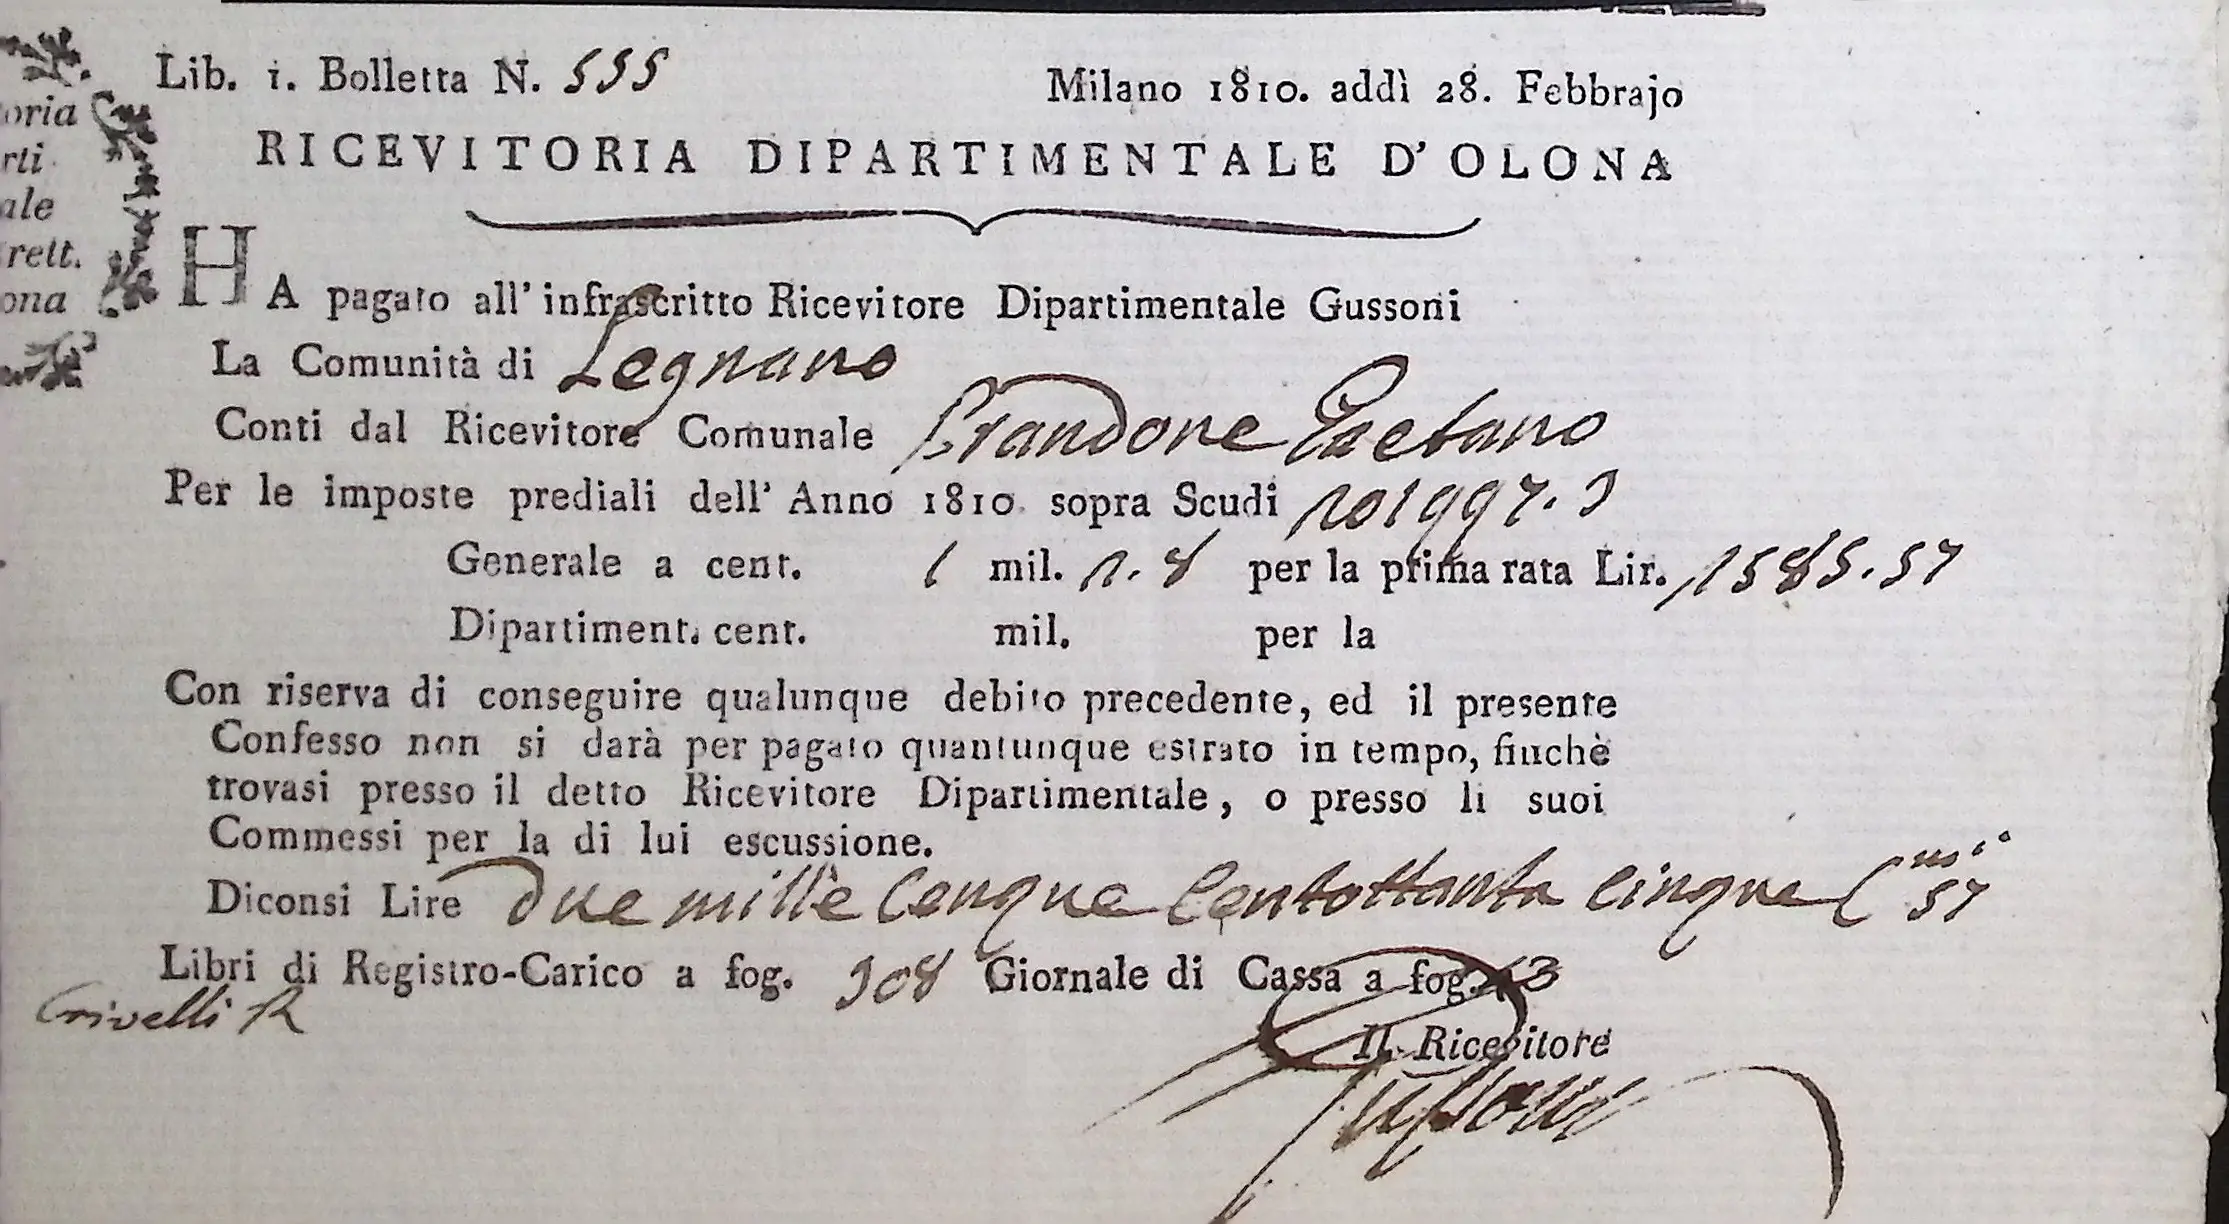 Lib. 1. Bolletta N. 555
Milano 1810. addì 28. Febbrajo
RICEVITORIA DIPARTIMENTALE D'OLONA
oria
rti
ale
rett.
ona
HA pagato all' infrascritto Ricevitore Dipartimentale Gussoni
La Comunità di Legnano
Conti dal Ricevitore Comunale Prandone Gaetano
Per le imposte prediali dell' Anno 1810. sopra Scudi 201997.3
Generale a cent. 1 mil. 2.8 per la prima rata Lir. 2585.57
Dipartiment. cent. mil. per la
Con riserva di conseguire qualunque debito precedente, ed il presente
Confesso non si darà per pagato quantunque estrato in tempo, finchè
trovasi presso il detto Ricevitore Dipartimentale, o presso li suoi
Commessi per la di lui escussione.
Diconsi Lire due mille Cinque Centottanta Cinque C 57
Libri di Registro-Carico a fog. 308 Giornale di Cassa a fog.
Crivelli R
Il Ricevitore
Gussoni